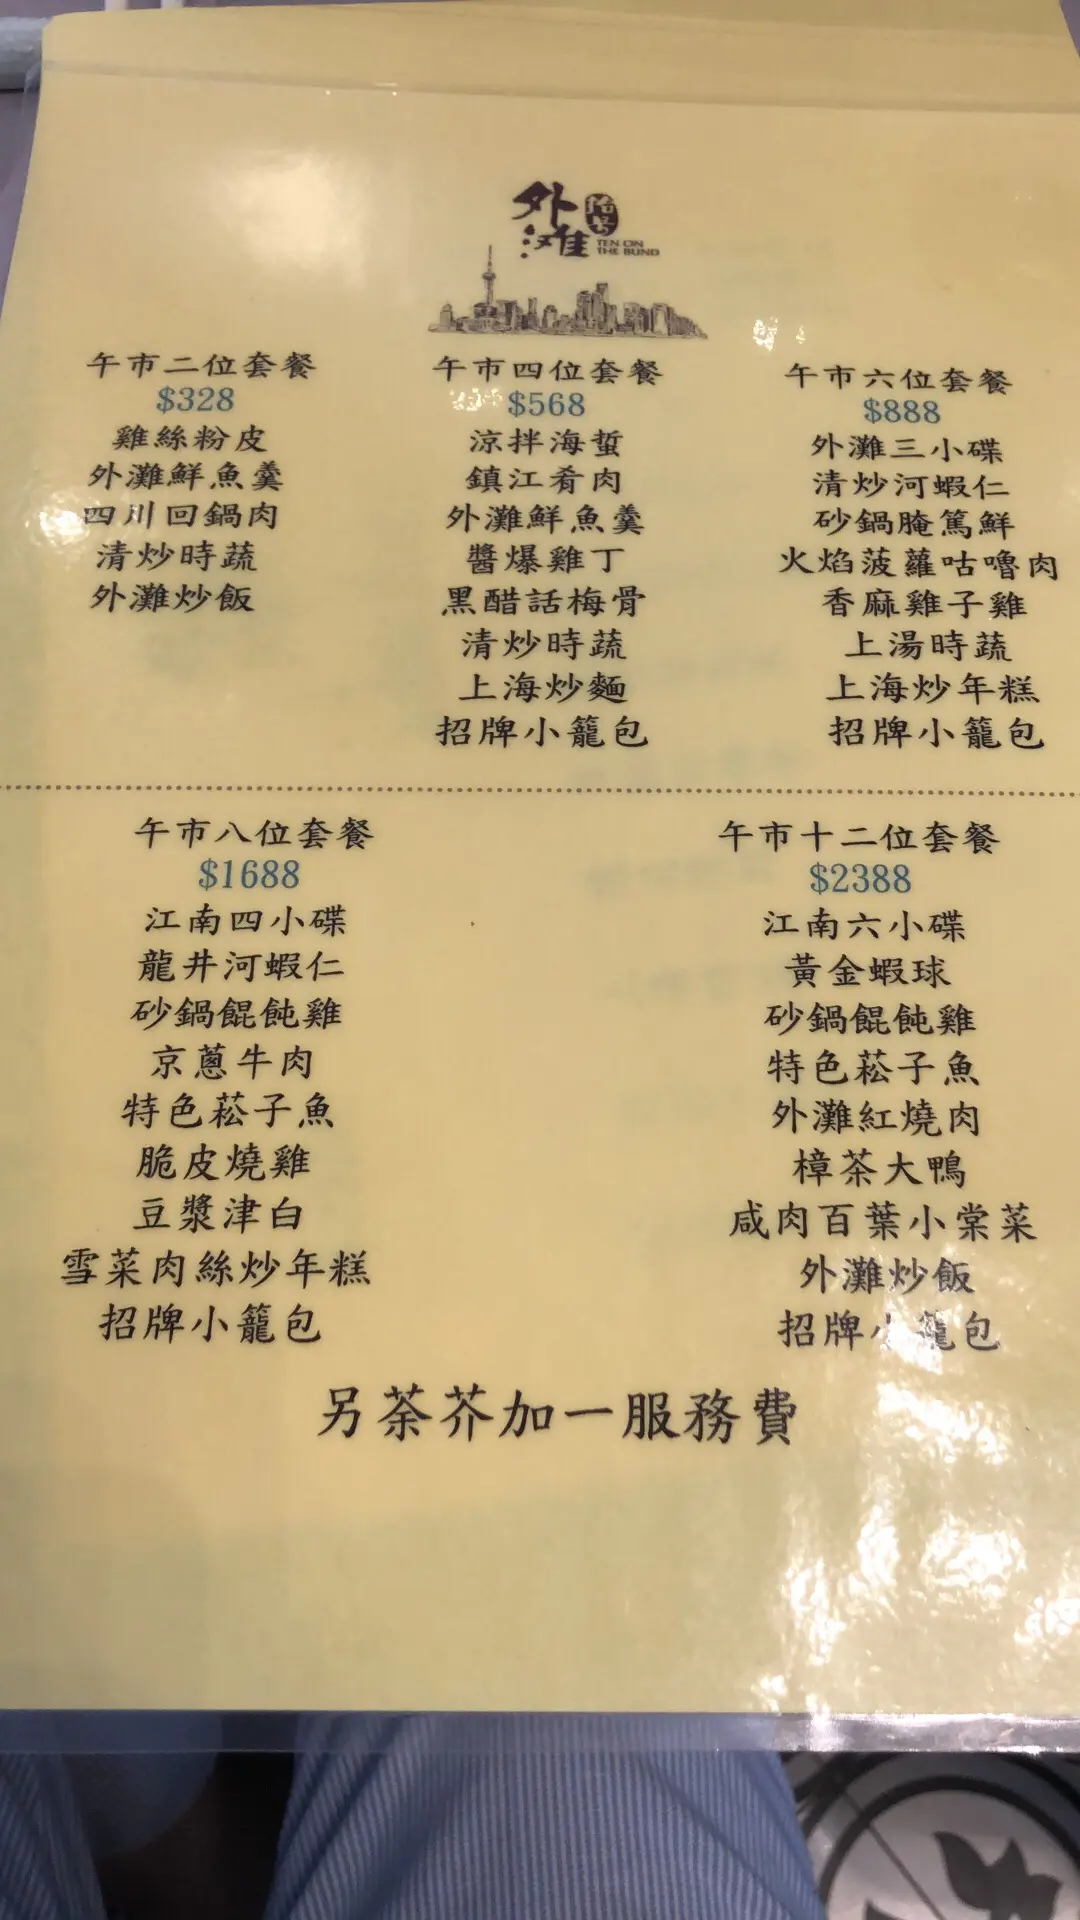 外灘
TEN ON
THE BUND
午市二位套餐
$328
雞絲粉皮
外灘鮮魚羹
四川回鍋肉
清炒時蔬
外灘炒飯
午市四位套餐
$568
涼拌海蜇
鎮江肴肉
外灘鮮魚羹
醬爆雞丁
黑醋話梅骨
清炒時蔬
上海炒麵
招牌小籠包
午市六位套餐
$888
外灘三小碟
清炒河蝦仁
砂鍋腌篤鮮
火焰菠蘿咕嚕肉
香麻雞子雞
上湯時蔬
上海炒年糕
招牌小籠包
午市八位套餐
$1688
江南四小碟
龍井河蝦仁
砂鍋餛飩雞
京蔥牛肉
特色菘子魚
脆皮燒雞
豆漿津白
雪菜肉絲炒年糕
招牌小籠包
午市十二位套餐
$2388
江南六小碟
黃金蝦球
砂鍋餛飩雞
特色菘子魚
外灘紅燒肉
樟茶大鴨
咸肉百葉小棠菜
外灘炒飯
招牌小籠包
另荼芥加一服務費